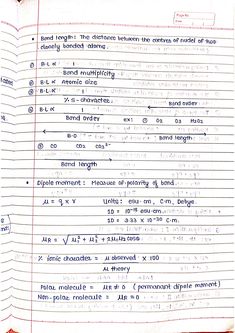 • Bond length: The distance between the centres of nuclei of two
closely bonded atoms.
① B·L ∝ 1
Bond multiplicity
② B·L ∝ Atomic size
③ B·L ∝ 1
% s-character
④ B·L ∝ 1
Bond order
Bond order
ex: ① O₂ O₃ H₂O₂
B·O
Bond length
② CO CO₂ CO₃²⁻
Bond length
• Dipole moment: Measure of polarity of bond.
μ = q × r
Units: esu-cm, C·m, Debye.
1D = 10⁻¹⁸ esu·cm
1D = 3.33 × 10⁻³⁰ C·m
μR = √ μ₁² + μ₂² + 2μ₁μ₂cosθ
% ionic character = μ observed × 100
μ theory
Polar molecule = μR ≠ 0 (permanent dipole moment)
Non-polar molecule = μR = 0